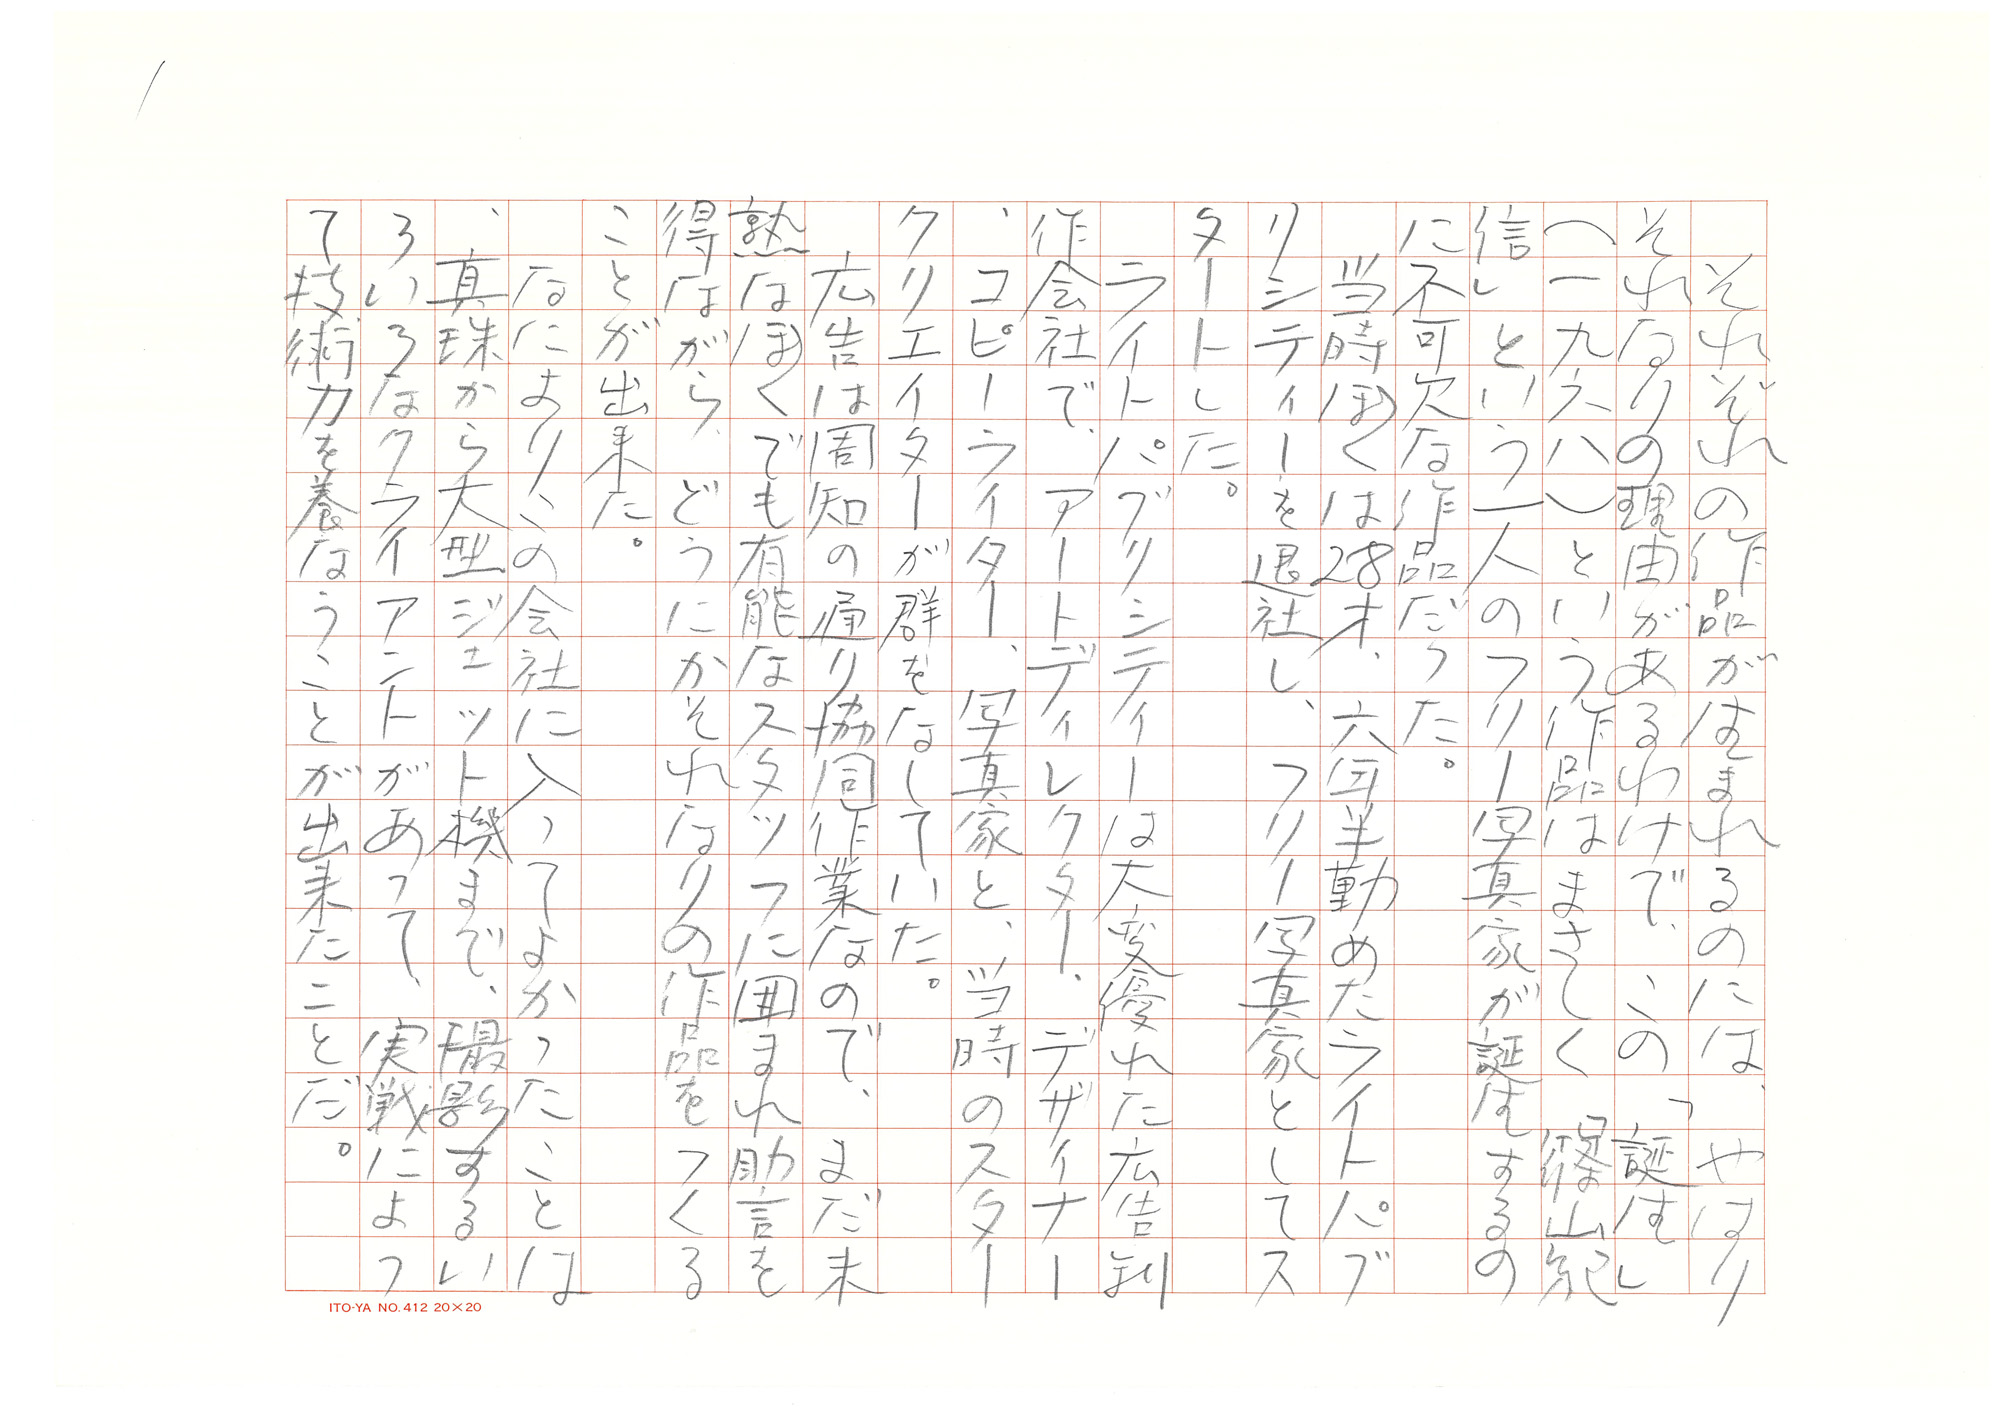 それぞれの作品が生まれるのには、やはり
それなりの理由があるわけで、この「誕生」
（一九六八）という作品はまさしく「篠山紀
信」という一人のフリー写真家が誕生するの
に不可欠な作品だった。
当時ぼくは28才、六年半勤めたライトパブ
リシティーを退社し、フリー写真家としてス
タートした。
ライトパブリシティーは大変優れた広告制
作会社で、アートディレクター、デザイナー
、コピーライター、写真家と、当時のスター
クリエイターが群をなしていた。
広告は周知の通り協同作業なので、まだ未
熟なぼくでも有能なスタッフに囲まれ助言を
得ながら、どうにかそれなりの作品をつくる
ことが出来た。
なによりこの会社に入ってよかったことは
、真珠から大型ジェット機まで、撮影するい
ろいろなクライアントがあって、実戦によっ
て技術力を養なうことが出来たことだ。
ITO-YA NO.412 20×20